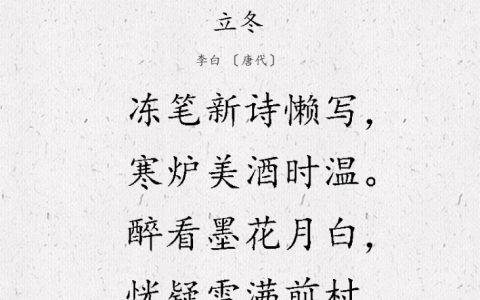 立冬
李白 〔唐代〕
冻笔新诗懒写，
寒炉美酒时温。
醉看墨花月白，
恍疑雪满前村